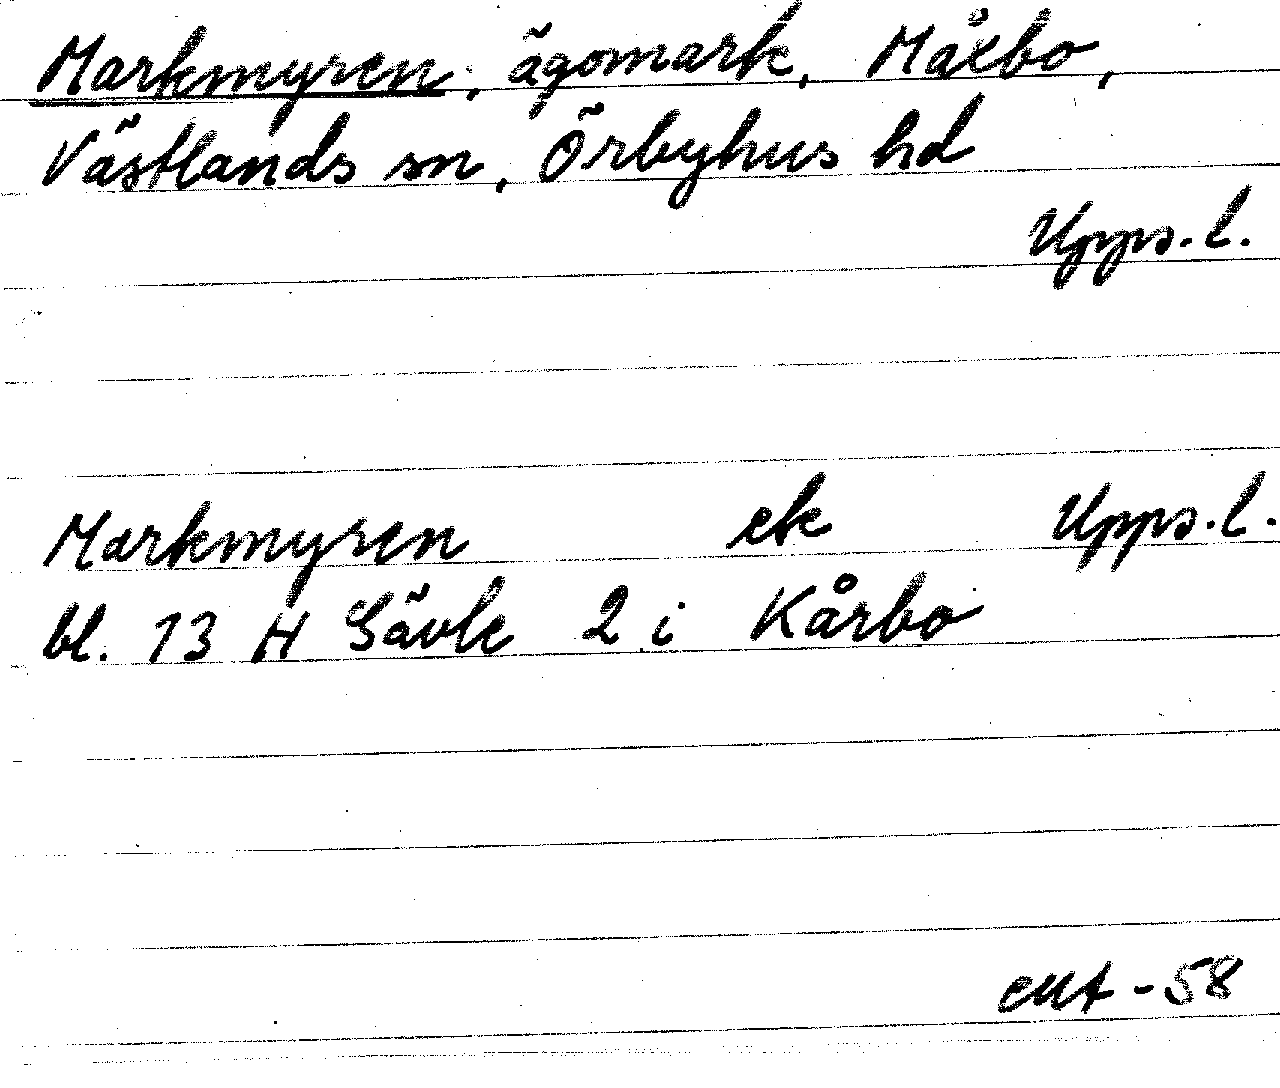 Markmyren, ägomark, Målbo,
Västlands sn, Örbyhus hd
Upps. l.
Markmyren ek Upps. l.
bl. 13 H Gävle 2 i Kårbo
-58